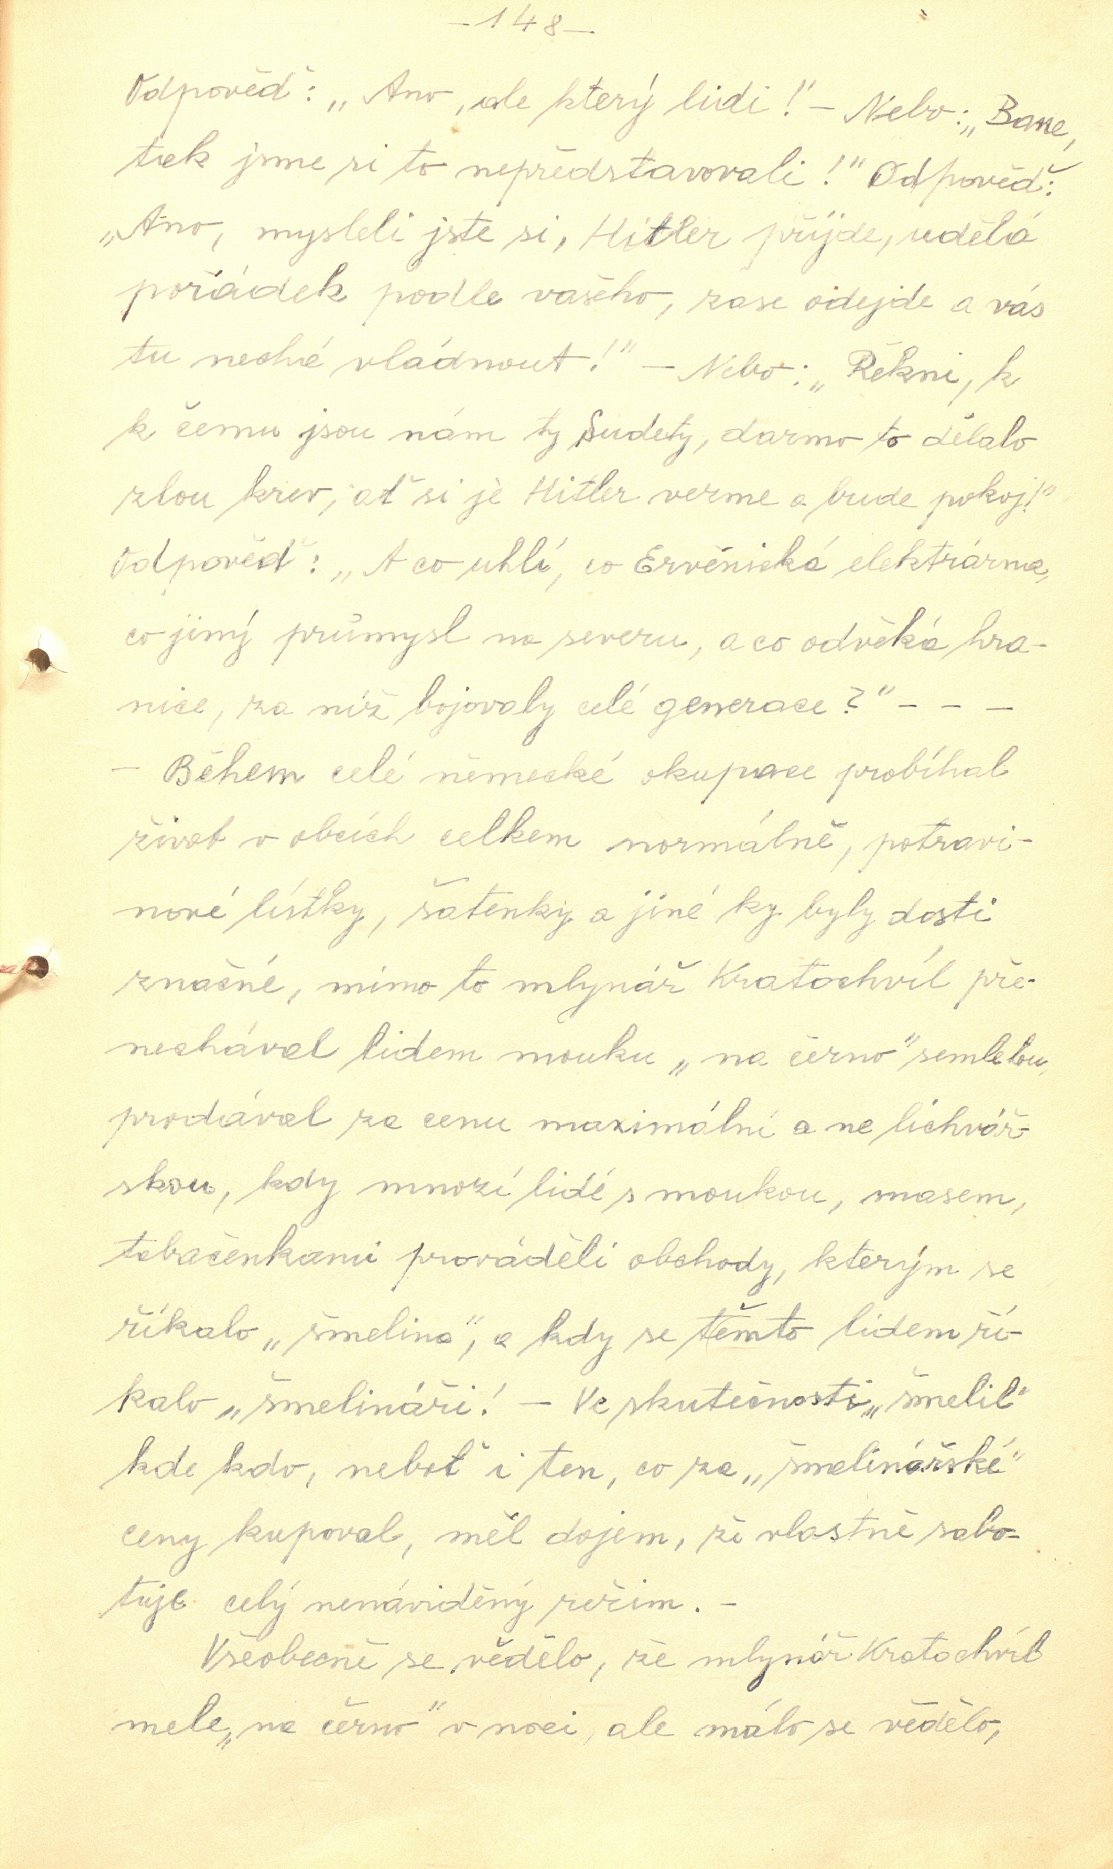 -148-
Odpověď: „Ano, ale který lidi!" - Nebo: „Bane,
tak jsme si to nepředstavovali!" Odpověď:
„Ano, mysleli jste si, Hitler příjde, udělá
pořádek podle vašeho, zase odejde a vás
tu nechá vládnout!" - Nebo: „Řekni, k
k čemu jsou nám ty Sudety, darmo to dělalo
zlou krev, ať si je Hitler verme a bude pokoj!"
Odpověď: „A co uhlí, co Ervěnická elektrárna,
co jiný průmysl na severu, a co odvěká hra-
nice, za níž bojovaly celé generace?" - - -
- Během celé německé okupace probíhal
život v obcích celkem normálně, potravi-
nové lístky, šatenky a jiné ky byly dosti
značné, mimo to mlynář Kratochvíl pře-
nechával lidem mouku „na černo" semletou,
prodával za cenu maximální a ne lichvář-
skou, kdy mnozí lidé s moukou, masem,
tabačenkami prováděli obchody, kterým se
říkalo „šmelina", a kdy se těmto lidem ří-
kalo „šmelináři! - Ve skutečnosti „šmelil"
kde kdo, neboť i ten, co za „šmelinářské"
ceny kupoval, měl dojem, že vlastně sabo-
tuje celý nenáviděný režim. -
Všeobecně se vědělo, že mlynář Kratochvíl
mele „na černo" v noci, ale málo se vědělo,